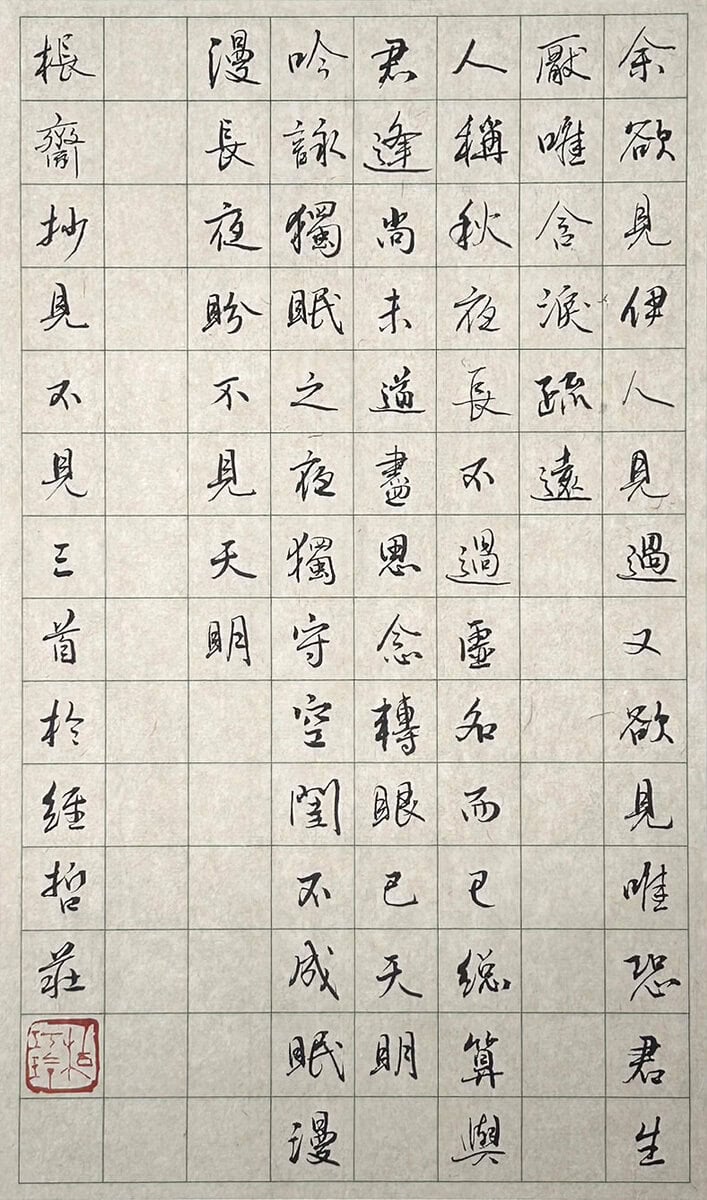 余欲見伊人見過又欲見唯恐君生
厭唯含淚疏遠
人稱秋夜長不過虛名而已總算與
君逢尚未道盡思念轉眼已天明
吟詠獨眠之夜獨守空閨不成眠漫
漫長夜盼不見天明
棖齋抄見不見三首於經哲莊